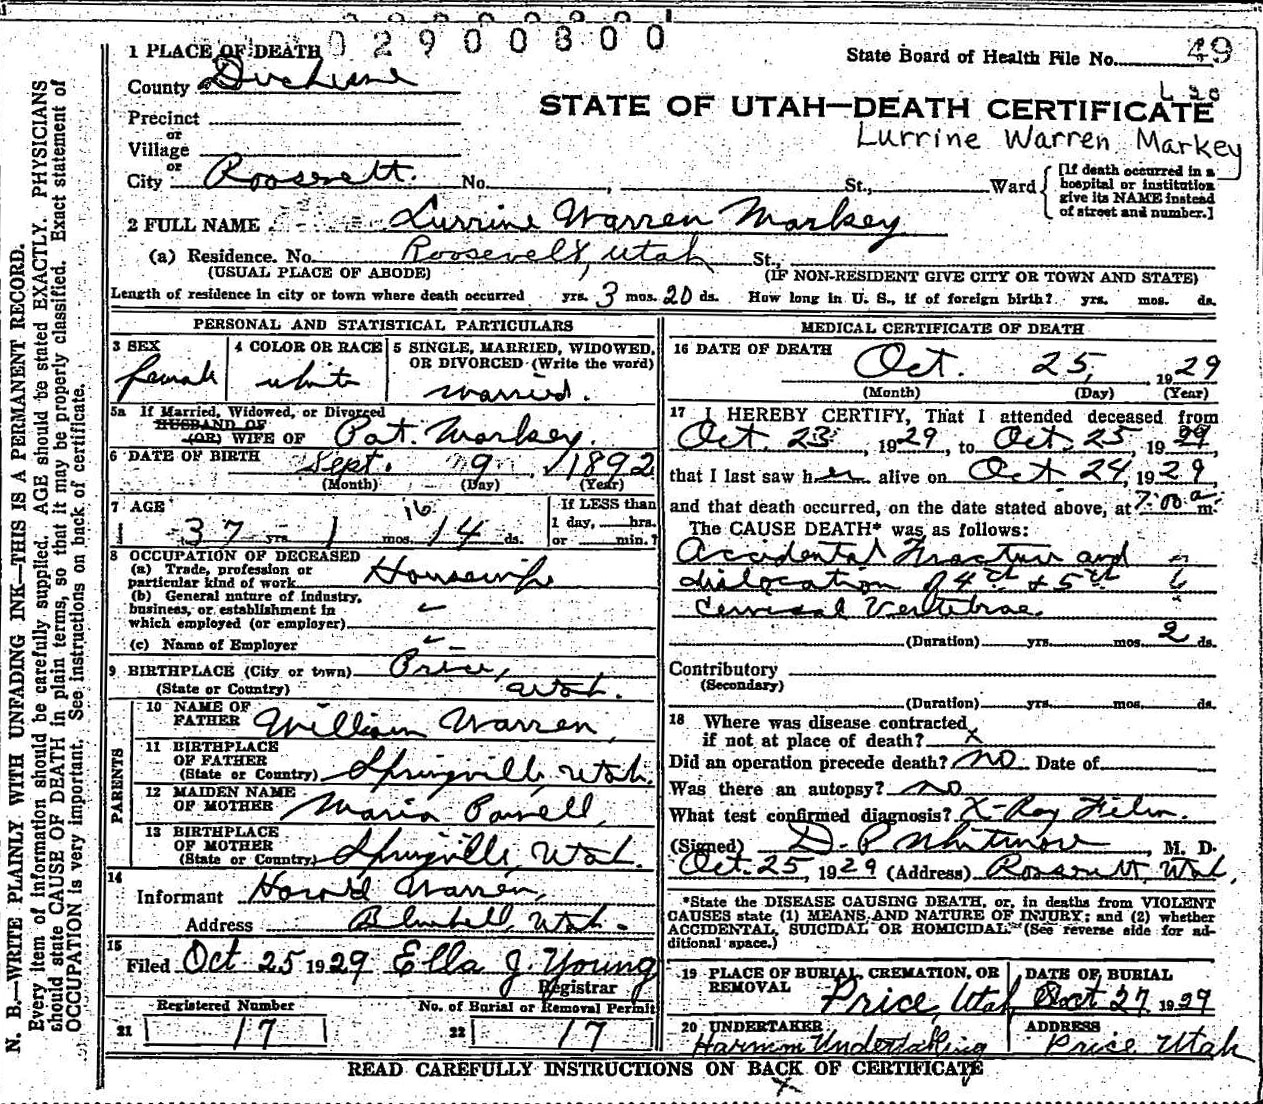 0 2 9 0 0 8 0 0
1 PLACE OF DEATH
State Board of Health File No. 49
County Duchesne
STATE OF UTAH—DEATH CERTIFICATE
Precinct
or
Village
Lurrine Warren Markey
or
City Roosevelt. No. , St., Ward
[If death occurred in a
hospital or institution
give its NAME instead
of street and number.]
2 FULL NAME Lurrine Warren Markey
(a) Residence. No. Roosevelt, Utah St.,
(USUAL PLACE OF ABODE) (IF NON-RESIDENT GIVE CITY OR TOWN AND STATE)
Length of residence in city or town where death occurred yrs. 3 mos. 20 ds. How long in U. S., if of foreign birth? yrs. mos. ds.
PERSONAL AND STATISTICAL PARTICULARS
3 SEX
female
4 COLOR OR RACE
white
5 SINGLE, MARRIED, WIDOWED,
OR DIVORCED (Write the word)
married.
5a If Married, Widowed, or Divorced
HUSBAND OF
(OR) WIFE OF Pat. Markey.
6 DATE OF BIRTH Sept. 9 1892
(Month) (Day) (Year)
7 AGE
37 yrs. 1 mos. 14 ds.
16
If LESS than
1 day, hrs.
or min.?
8 OCCUPATION OF DECEASED
(a) Trade, profession or
particular kind of work Housewife
(b) General nature of industry,
business, or establishment in
which employed (or employer)
(c) Name of Employer
9 BIRTHPLACE (City or town) Price,
(State or Country) Utah.
PARENTS
10 NAME OF
FATHER William Warren,
11 BIRTHPLACE
OF FATHER
(State or Country) Springville, Utah.
12 MAIDEN NAME
OF MOTHER Maria Powell,
13 BIRTHPLACE
OF MOTHER
(State or Country) Springville, Utah.
14
Informant Harold Warren,
Address Bluebell, Utah.
15
Filed Oct 25 1929 Ella J. Young
Registrar
Registered Number No. of Burial or Removal Permit
21 17 22 17
MEDICAL CERTIFICATE OF DEATH
16 DATE OF DEATH
Oct. 25, 1929
(Month) (Day) (Year)
17 I HEREBY CERTIFY, That I attended deceased from
Oct. 23, 1929, to Oct. 25, 1929
that I last saw her alive on Oct 24, 1929,
and that death occurred, on the date stated above, at 7:00 a m.
The CAUSE DEATH* was as follows:
Accidental Fracture and
dislocation of 4th & 5th
Cervical Vertebrae.
(Duration) yrs. mos. 2 ds.
Contributory
(Secondary)
(Duration) yrs. mos. ds.
18 Where was disease contracted
if not at place of death? X
Did an operation precede death? no Date of
Was there an autopsy? no
What test confirmed diagnosis? X-Ray Film.
(Signed) D. P. Whitmore, M. D.
Oct. 25, 1929 (Address) Roosevelt, Utah.
*State the DISEASE CAUSING DEATH, or, in deaths from VIOLENT
CAUSES state (1) MEANS AND NATURE OF INJURY; and (2) whether
ACCIDENTAL, SUICIDAL OR HOMICIDAL. (See reverse side for ad-
ditional space.)
19 PLACE OF BURIAL, CREMATION, OR
REMOVAL Price, Utah
DATE OF BURIAL
Oct 27, 1929
20 UNDERTAKER
Harmon Undertaking
ADDRESS
Price Utah
READ CAREFULLY INSTRUCTIONS ON BACK OF CERTIFICATE
X
N. B.—WRITE PLAINLY WITH UNFADING INK—THIS IS A PERMANENT RECORD.
Every item of information should be carefully supplied. AGE should be stated EXACTLY. PHYSICIANS
should state CAUSE OF DEATH in plain terms, so that it may be properly classified. Exact statement of
OCCUPATION is very important. See instructions on back of certificate.